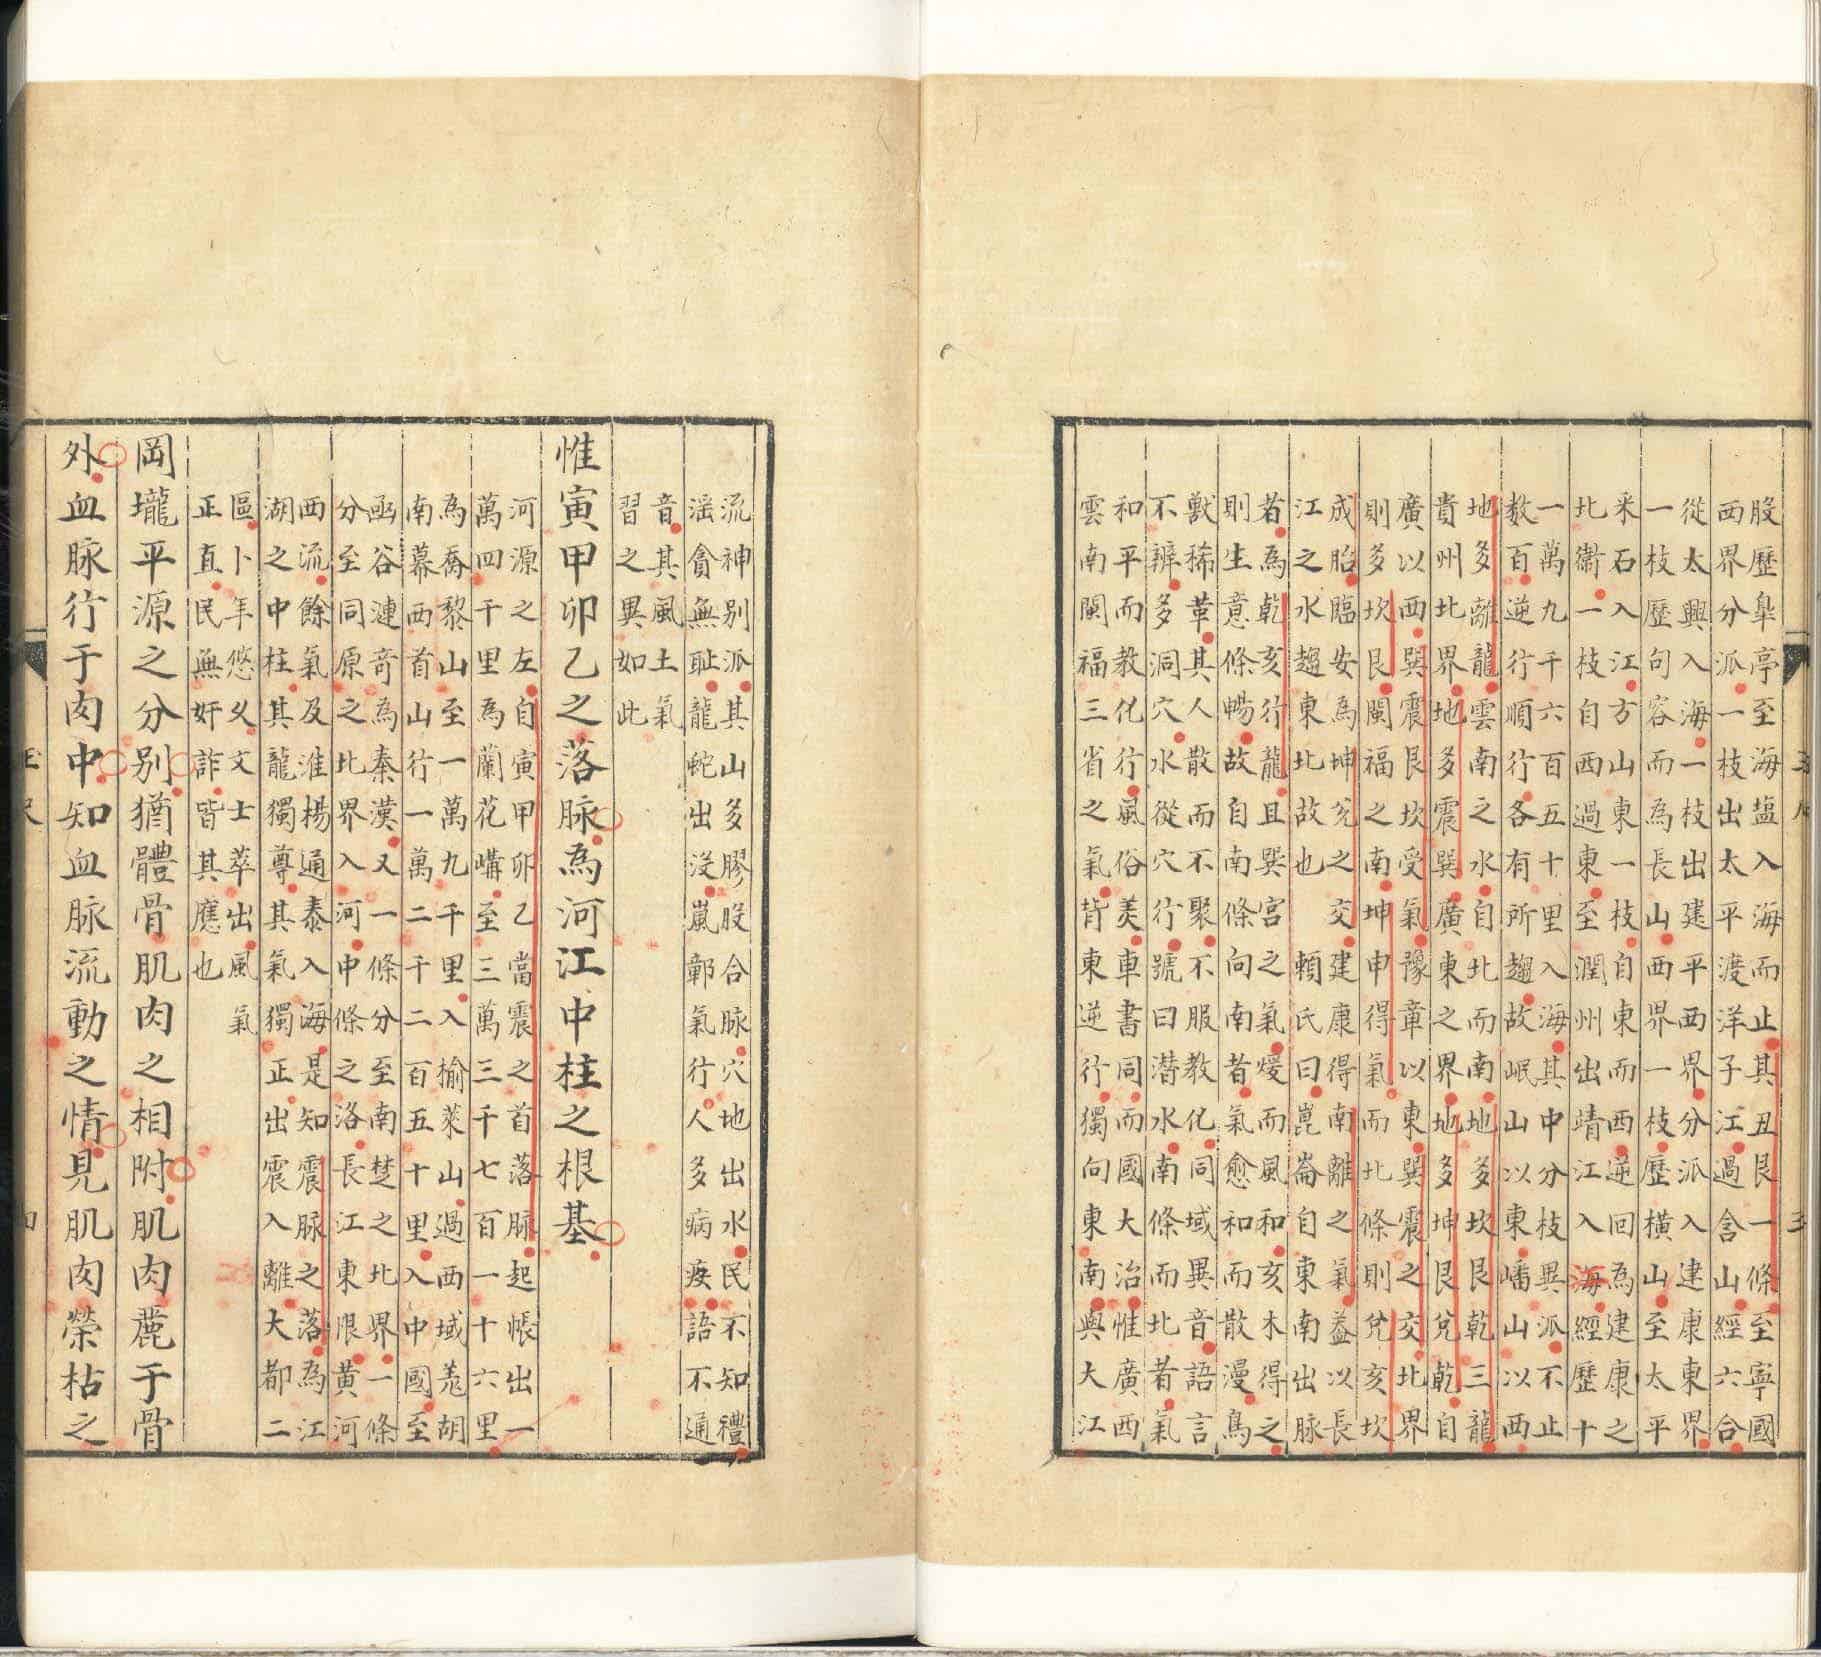 股歷阜亭至海塩入海而止其丑艮一條至寧國
西界分派一枝出太平渡洋子江過含山經六合
從太興入海一枝出建平西界分派入建康東界
一枝歷句容而為長山西界一枝歷橫山至太平
采石入江方山東一枝自東而西逆回為建康之
北衝一枝自西過東至潤州出靖江入海經歷十
一萬九千六百五十里入海其中分枝異派不止
数百逆行順行各有所趨故岷山以東嶓山以西
地多離龍雲南之水自北而南地多坎艮乾三龍
貴州北界地多震巽廣東之界地多坤艮兌乾自
廣以西巽震艮坎受氣豫章以東巽震之交北界
則多坎艮閩福之南坤申得氣而北條則兌亥坎
成胎臨安為坤兌之交建康得南離之氣葢以長
江之水趨東北故也 賴氏曰崑崙自東南出脉
者為乾亥行龍且巽宮之氣煖而風和亥木得之
則生意條暢故自南條向南者氣愈和而散漫鳥
獸稀革其人散而不聚不服教化同域異音語言
不辨多洞穴水從穴行號曰潜水南條而北者氣
和平而教化行風俗美車書同而國大治惟廣西
雲南閩福三省之氣背東逆行獨向東南與大江
流神别派其山多膠股合脉穴地出水民不知禮
滛貪無耻龍蛇出沒嵐鄣氣行人多病疫語不通
音其風土氣
習之異如此
惟寅甲卯乙之落脉為河江中柱之根基
河源之左自寅甲卯乙當震之首落脉起帳出一
萬四千里為蘭花嶙至三萬三千七百一十六里
為喬黎山至一萬九千里入榆萊山過西域羗胡
南幕西首山行一萬二千二百五十里入中國至
函谷漣奇為秦漢又一條分至南楚之北界一條
分至同原之北界入河中條之洛長江東限黄河
西流餘氣及淮楊通泰入海是知震脉之落為江
湖之中柱其龍獨尊其氣獨正出震入離大都二
區卜年悠乆文士萃出風氣
正直民無奸詐皆其應也
岡壠平源之分别猶體骨肌肉之相附肌肉麗于骨
外血脉行于肉中知血脉流動之情見肌肉榮枯之